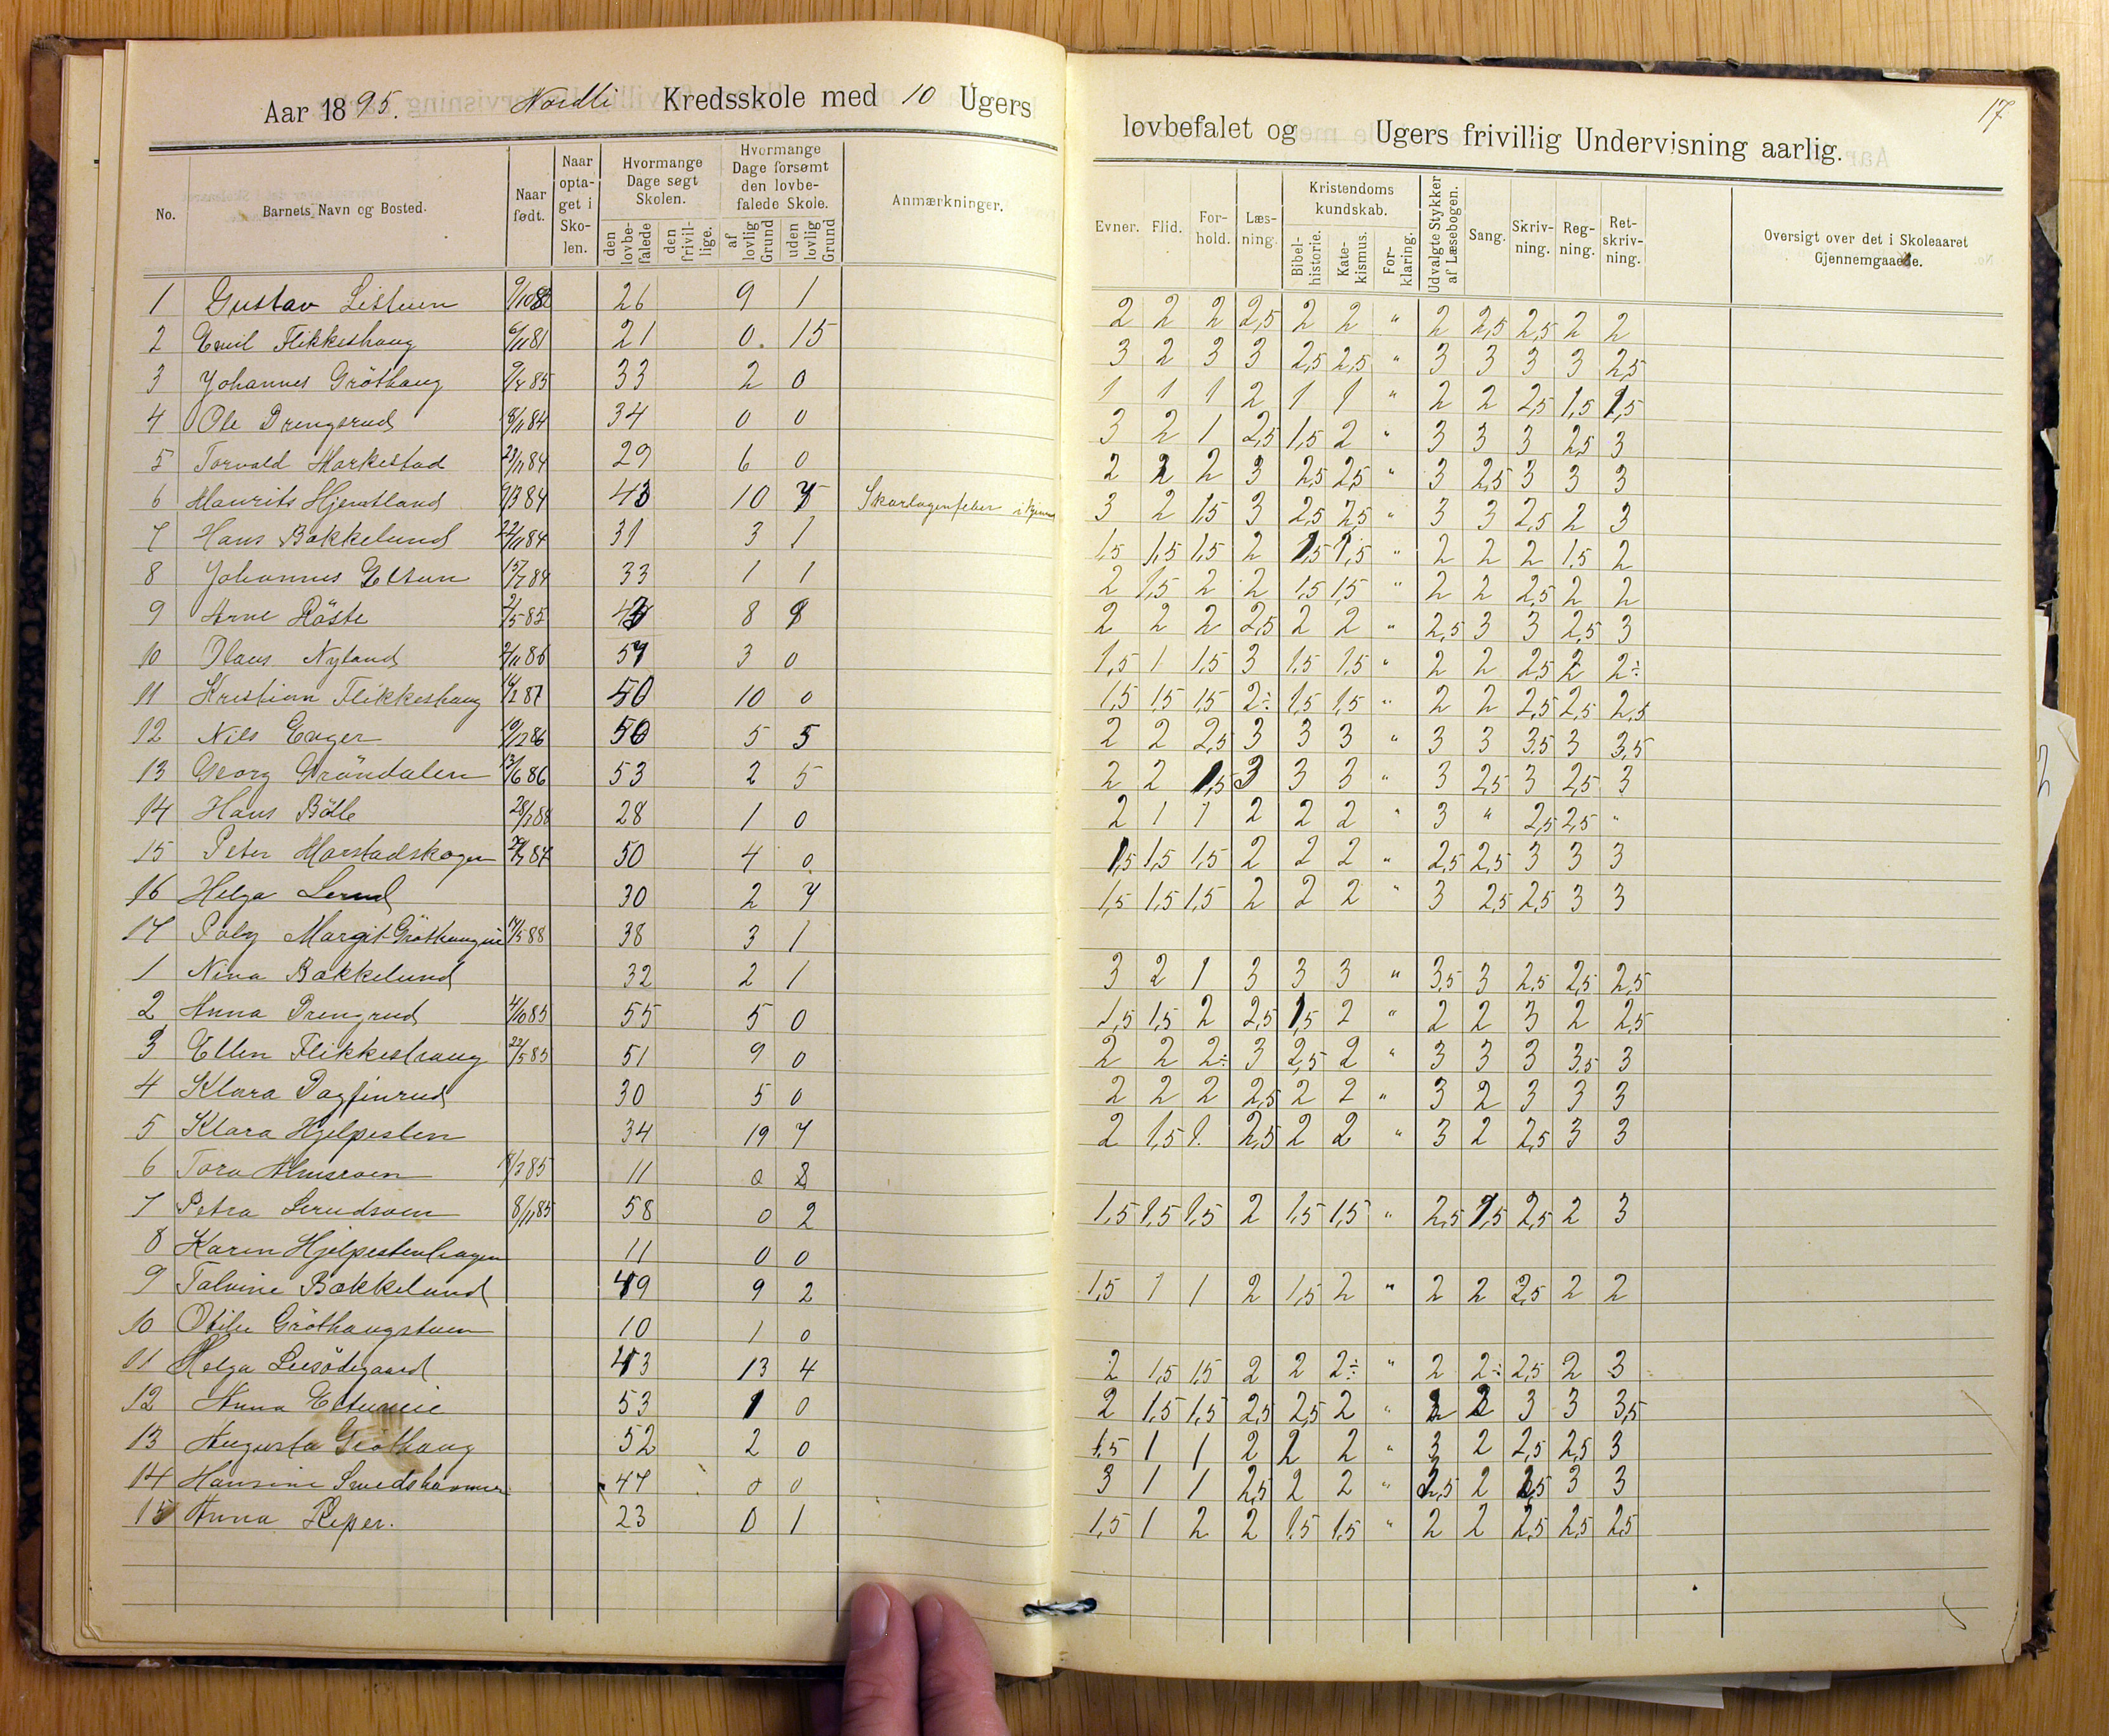 Aar 1895. Nordli Kredsskole med 10 Ugers
No. Barnets Navn og Bosted. Naar født. Naar optaget i Skolen. Hvormange Dage søgt Skolen. den lovbefalede den frivillige. Hvormange Dage forsømt den lovbefalede Skole. af lovlig Grund uden lovlig Grund Anmærkninger.
1 Gustav Listuen 26 9 1
2 Emil Flikkeshaug 6/11 81 21 0. 15
3 Johannes Gröthaug 9/4 85 33 2 0
4 Ole Drengsrud 8/11 84 34 0 0
5 Torvald Markestad 29/11 84 29 6 0
6 Maurits Hjemtland 43 10 Skarlagensfeber i
7 Hans Bakkelund 22/11 84 31 3 1
8 Johannes Eltun 15/7 84 33 1 1
9 Arne Röste 8
10 Olaus Nyland 2/11 86 3 0
11 Kristian Flikkeshaug 50 10 0
12 Nils Enger 50 5 5
13 Georg Gröndalen 13/6 86 53 2 5
14 Hans Bölle 28 1 0
15 Peter Marstadskogen 50 4 0
16 Helga Lerud 30 2 7
17 Margit 17/5 88 38 3 1
1 Nina Bakkelund 32 2 1
2 Anna Drengrud 4/10 85 55 5 0
3 Ellen Flikkeshaug 22/5 85 51 9 0
4 Klara Dagfinrud 30 5 0
5 Klara Hjelpesten 34 19 7
6 Tora 11 0
7 Petra 8/11 85 58 0 2
8 Karen Hjelpestenhagen 11 0 0
9 Talvine Bakkelund 49 9 2
10 Otilie Gröthaugstuen 10 1 0
11 Helga 43 13 4
12 Anna 53 1 0
13 Augusta Gröthaug 52 2 0
14 Hansine Smedshammer 47 0 0
15 Anna 23 0 1
17
lovbefalet og Ugers frivillig Undervisning aarlig.
Evner. Flid. Forhold. Læsning. Kristendomskundskab. Bibelhistorie. Katekismus. Forklaring. Udvalgte Stykker af Læsebogen. Sang. Skrivning. Regning. Retskrivning. Oversigt over det i Skoleaaret Gjennemgaaede.
2 2 2 2,5 2 2 " 2 2,5 2,5 2 2
3 2 3 3 2,5 2,5 " 3 3 3 3 2,5
1 1 1 2 1 1 " 2 2 2,5 1,5 1,5
3 2 1 2,5 1,5 2 " 3 3 3 2,5 3
2 2 2 3 2,5 2,5 " 3 2,5 3 3 3
3 2 1,5 3 2,5 2,5 " 3 3 2,5 2 3
1,5 1,5 1,5 2 1,5 1,5 " 2 2 2 1,5 2
2 1,5 2 2 1,5 1,5 " 2 2 2,5 2 2
2 2 2 2,5 2 2 " 2,5 3 3 2,5 3
1,5 1 1,5 3 1,5 1,5 " 2 2 2,5 2 2÷
1,5 1,5 1,5 2÷ 1,5 1,5 " 2 2 2,5 2,5 2,5
2 2 2,5 3 3 3 " 3 3 3,5 3 3,5
2 2 1,5 3 3 3 " 3 2,5 3 2,5 3
2 1 1 2 2 2 " 3 " 2,5 2,5 "
1,5 1,5 1,5 2 2 2 " 2,5 2,5 3 3 3
1,5 1,5 1,5 2 2 2 " 3 2,5 2,5 3 3
3 2 1 3 3 3 " 3,5 3 2,5 2,5 2,5
1,5 1,5 2 2,5 1,5 2 " 2 2 3 2 2,5
2 2 2÷ 3 2,5 2 " 3 3 3 3,5 3
2 2 2 2,5 2 2 " 3 2 3 3 3
2 1,5 1. 2,5 2 2 " 3 2 2,5 3 3
1,5 1,5 1,5 2 1,5 1,5 " 2,5 1,5 2,5 2 3
1,5 1 1 2 1,5 2 " 2 2 2,5 2 2
2 1,5 1,5 2 2 2÷ " 2 2÷ 2,5 2 3
2 1,5 1,5 2,5 2,5 2 " 2 3 3 3,5
1,5 1 1 2 2 2 " 3 2 2,5 2,5 3
3 1 1 2,5 2 2 " 2,5 2 2,5 3 3
1,5 1 2 2 1,5 1,5 " 2 2 2,5 2,5 2,5